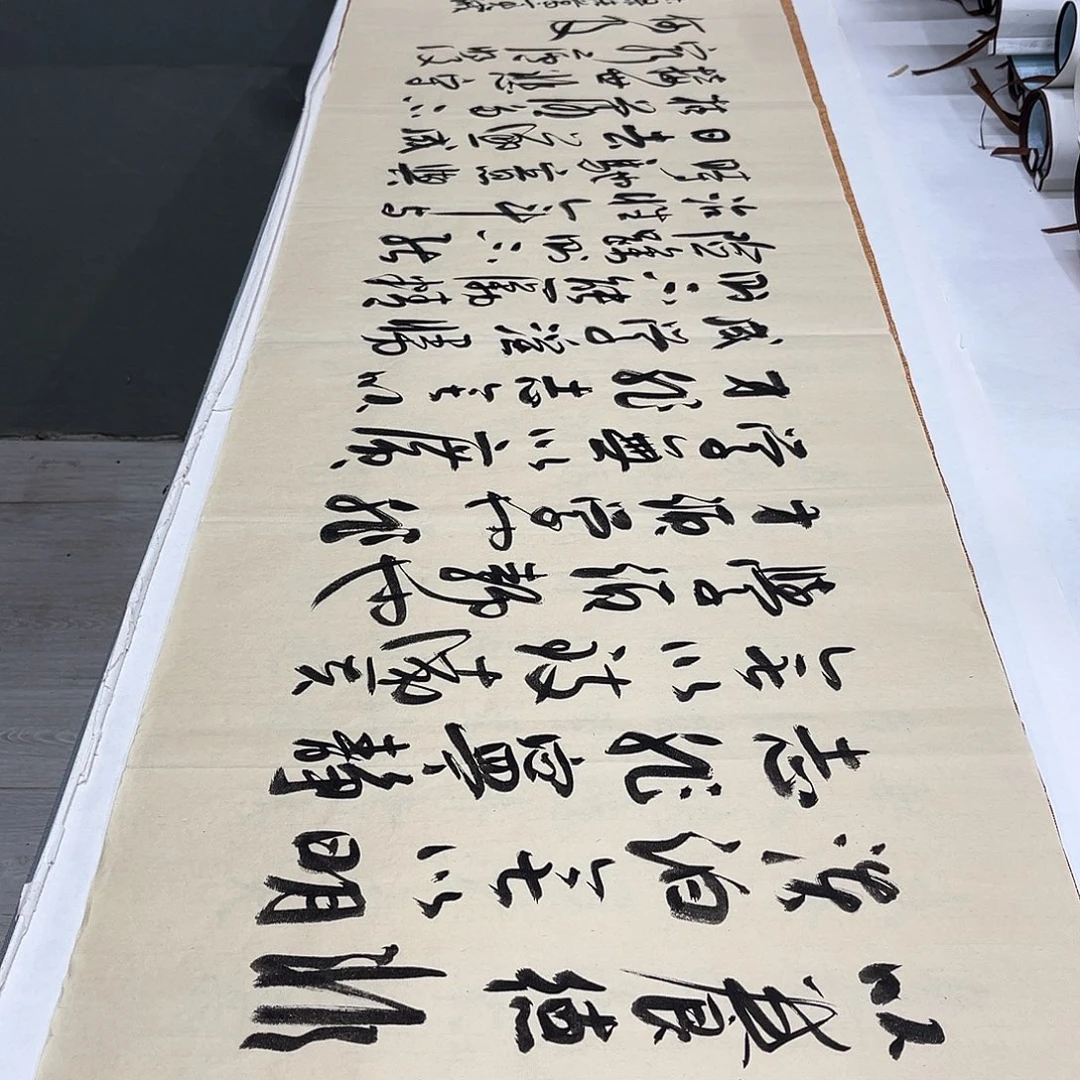 以養德非
澹泊無以明
志非寧靜
無以致遠夫
學須靜也
才須學也非
學無以廣
才非志無以
成學淫慢
則不能勵精
險躁則不能
治性年與
時馳意與
日去遂成
枯落多不
接世悲守
窮廬將復
何及